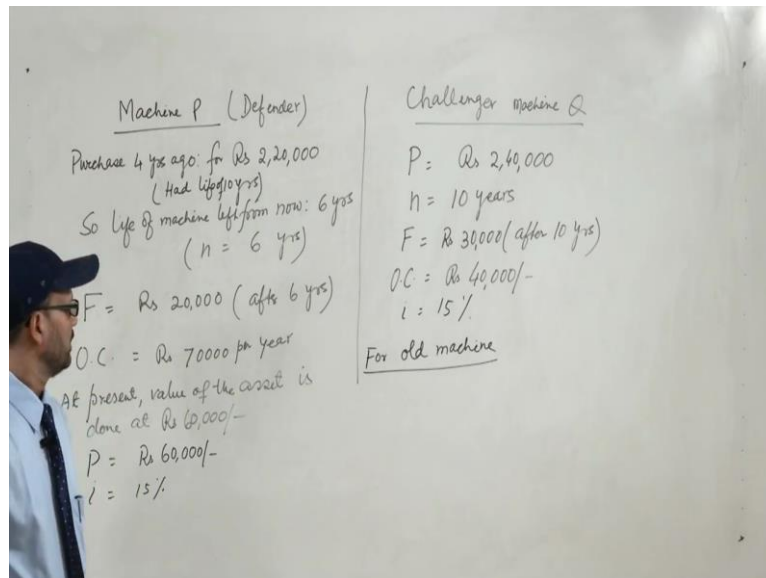 Machine P (Defender)
Purchase 4 yrs ago: for Rs 2,20,000
(Had life of 10 yrs)
So life of machine left from now: 6 yrs
(n = 6 yrs)
F = Rs 20,000 (after 6 yrs)
O.C. = Rs 70000 per year
At present, value of the asset is
done at Rs 60,000/-
P = Rs 60,000/-
i = 15%
Challenger machine Q
P = Rs 2,40,000
n = 10 years
F = Rs 30,000 (after 10 yrs)
O.C. = Rs 40,000/-
i = 15%
For old machine